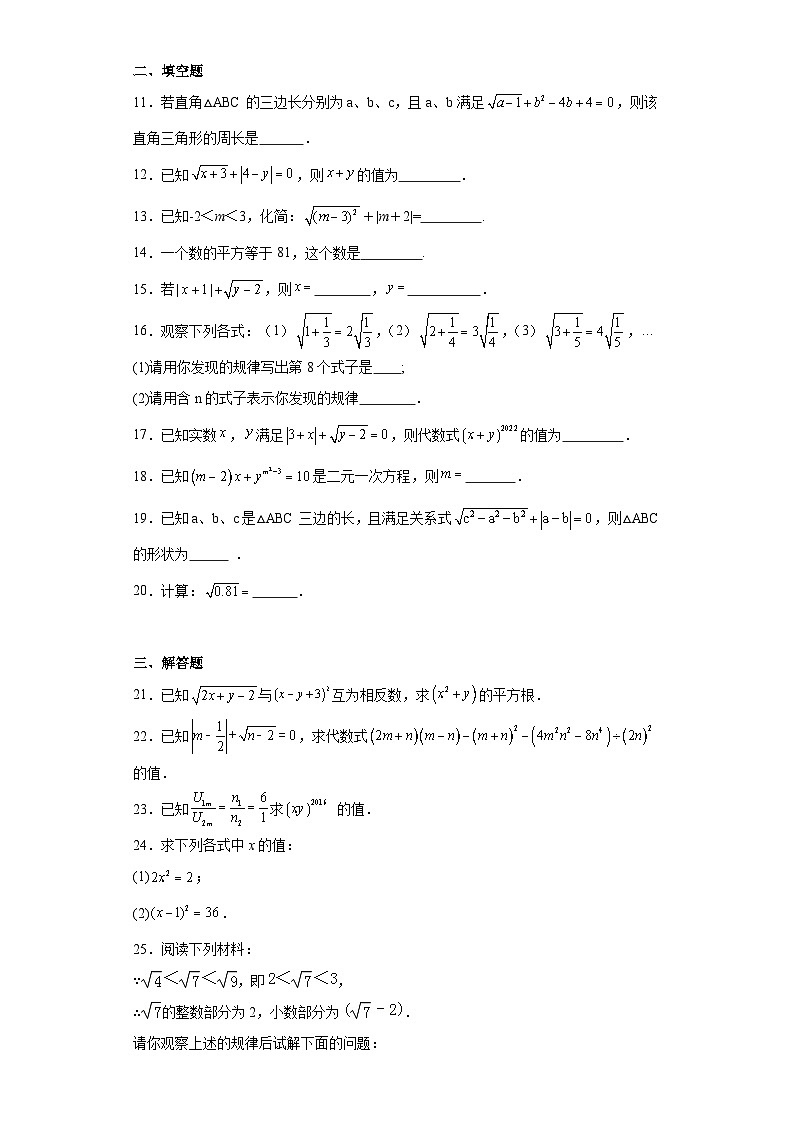 二、填空题
11.若直角△ABC 的三边长分别为 a、b、c,且 a、b 满足 √(a−1) + b² − 4b + 4 = 0,则该
直角三角形的周长是______.
12.已知 √(x+3) + |4−y| = 0,则 x+y 的值为________.
13.已知-2<m<3,化简:√((m−3)²) +|m+2|=________.
14.一个数的平方等于 81,这个数是________.
15.若 |x+1| + √(y−2),则 x = ________,y = __________.
16.观察下列各式:(1)√(1+1/3) = 2√(1/3),(2)√(2+1/4) = 3√(1/4),(3)√(3+1/5) = 4√(1/5),…
(1)请用你发现的规律写出第 8 个式子是____;
(2)请用含 n 的式子表示你发现的规律________.
17.已知实数 x,y 满足 |3+x| + √(y−2) = 0,则代数式 (x+y)²⁰²² 的值为________.
18.已知 (m−2)x + y^(m²−3) = 10 是二元一次方程,则 m = _______.
19.已知 a、b、c 是△ABC 三边的长,且满足关系式 √(c²−a²−b²) + |a−b| = 0,则△ABC
的形状为______ .
20.计算:√0.81 = ______.
三、解答题
21.已知 √(2x+y−2) 与 (x−y+3)² 互为相反数,求 (x²+y) 的平方根.
22.已知 |m−1/2| + √(n−2) = 0,求代数式 (2m+n)(m−n) − (m+n)² − (4m²n²−8n⁴) ÷ (2n)²
的值.
23.已知 U₁ₘ/U₂ₘ = n₁/n₂ = 6/1 求 (xy)²⁰¹⁶ 的值.
24.求下列各式中 x 的值:
(1) 2x² = 2;
(2) (x−1)² = 36.
25.阅读下列材料:
∵√4<√7<√9,即 2<√7<3,
∴√7的整数部分为 2,小数部分为(√7−2).
请你观察上述的规律后试解下面的问题: